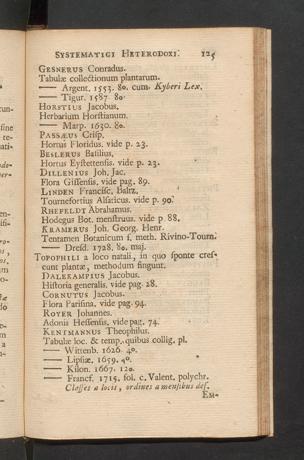 SYSTEMATICI HETERODOXI. 125
GESNERUS Conradus.
Tabulæ collectionum plantarum.
—— Argent. 1553. 80. cum. Kyberi Lex.
—— Tigur. 1587. 80.
HORSTIUS Jacobus.
Herbarium Horstianum.
—— Marp. 1630. 80.
PASSÆUS Crisp.
Hortus Floridus. vide p. 23.
BESLERUS Basilius,
Hortus Eystettensis. vide p. 23.
DILLENIUS Joh. Jac.
Flora Gissensis, vide pag. 89.
LINDEN Francisc. Baltz.
Tournefortius Alsaticus. vide p. 90.
RHEFELDT Abrahamus.
Hodegus Bot. menstruus. vide p 88.
KRAMERUS Joh. Georg. Henr.
Tentamen Botanicum s. meth. Rivino-Tourn.
—— Dresd. 1728. 80. maj.
TOPOPHILI a loco natali, in quo sponte cres-
cunt plantæ, methodum fingunt.
DALEKAMPIUS Jacobus.
Historia generalis. vide pag. 28.
CORNUTUS Jacobus.
Flora Parisina. vide pag. 94.
ROYER Johannes.
Adonis Hessensis, vide pag. 74.
KENTMANNUS Theophilus.
Tabulæ loc. & temp. quibus collig. pl.
—— Wittenb. 1626. 40.
—— Lipsiæ. 1659. 40.
—— Kilon. 1667. 120.
—— Francf. 1715. fol. c. Valent. polychr.
Classes a locis, ordines a mensibus des.
Em-